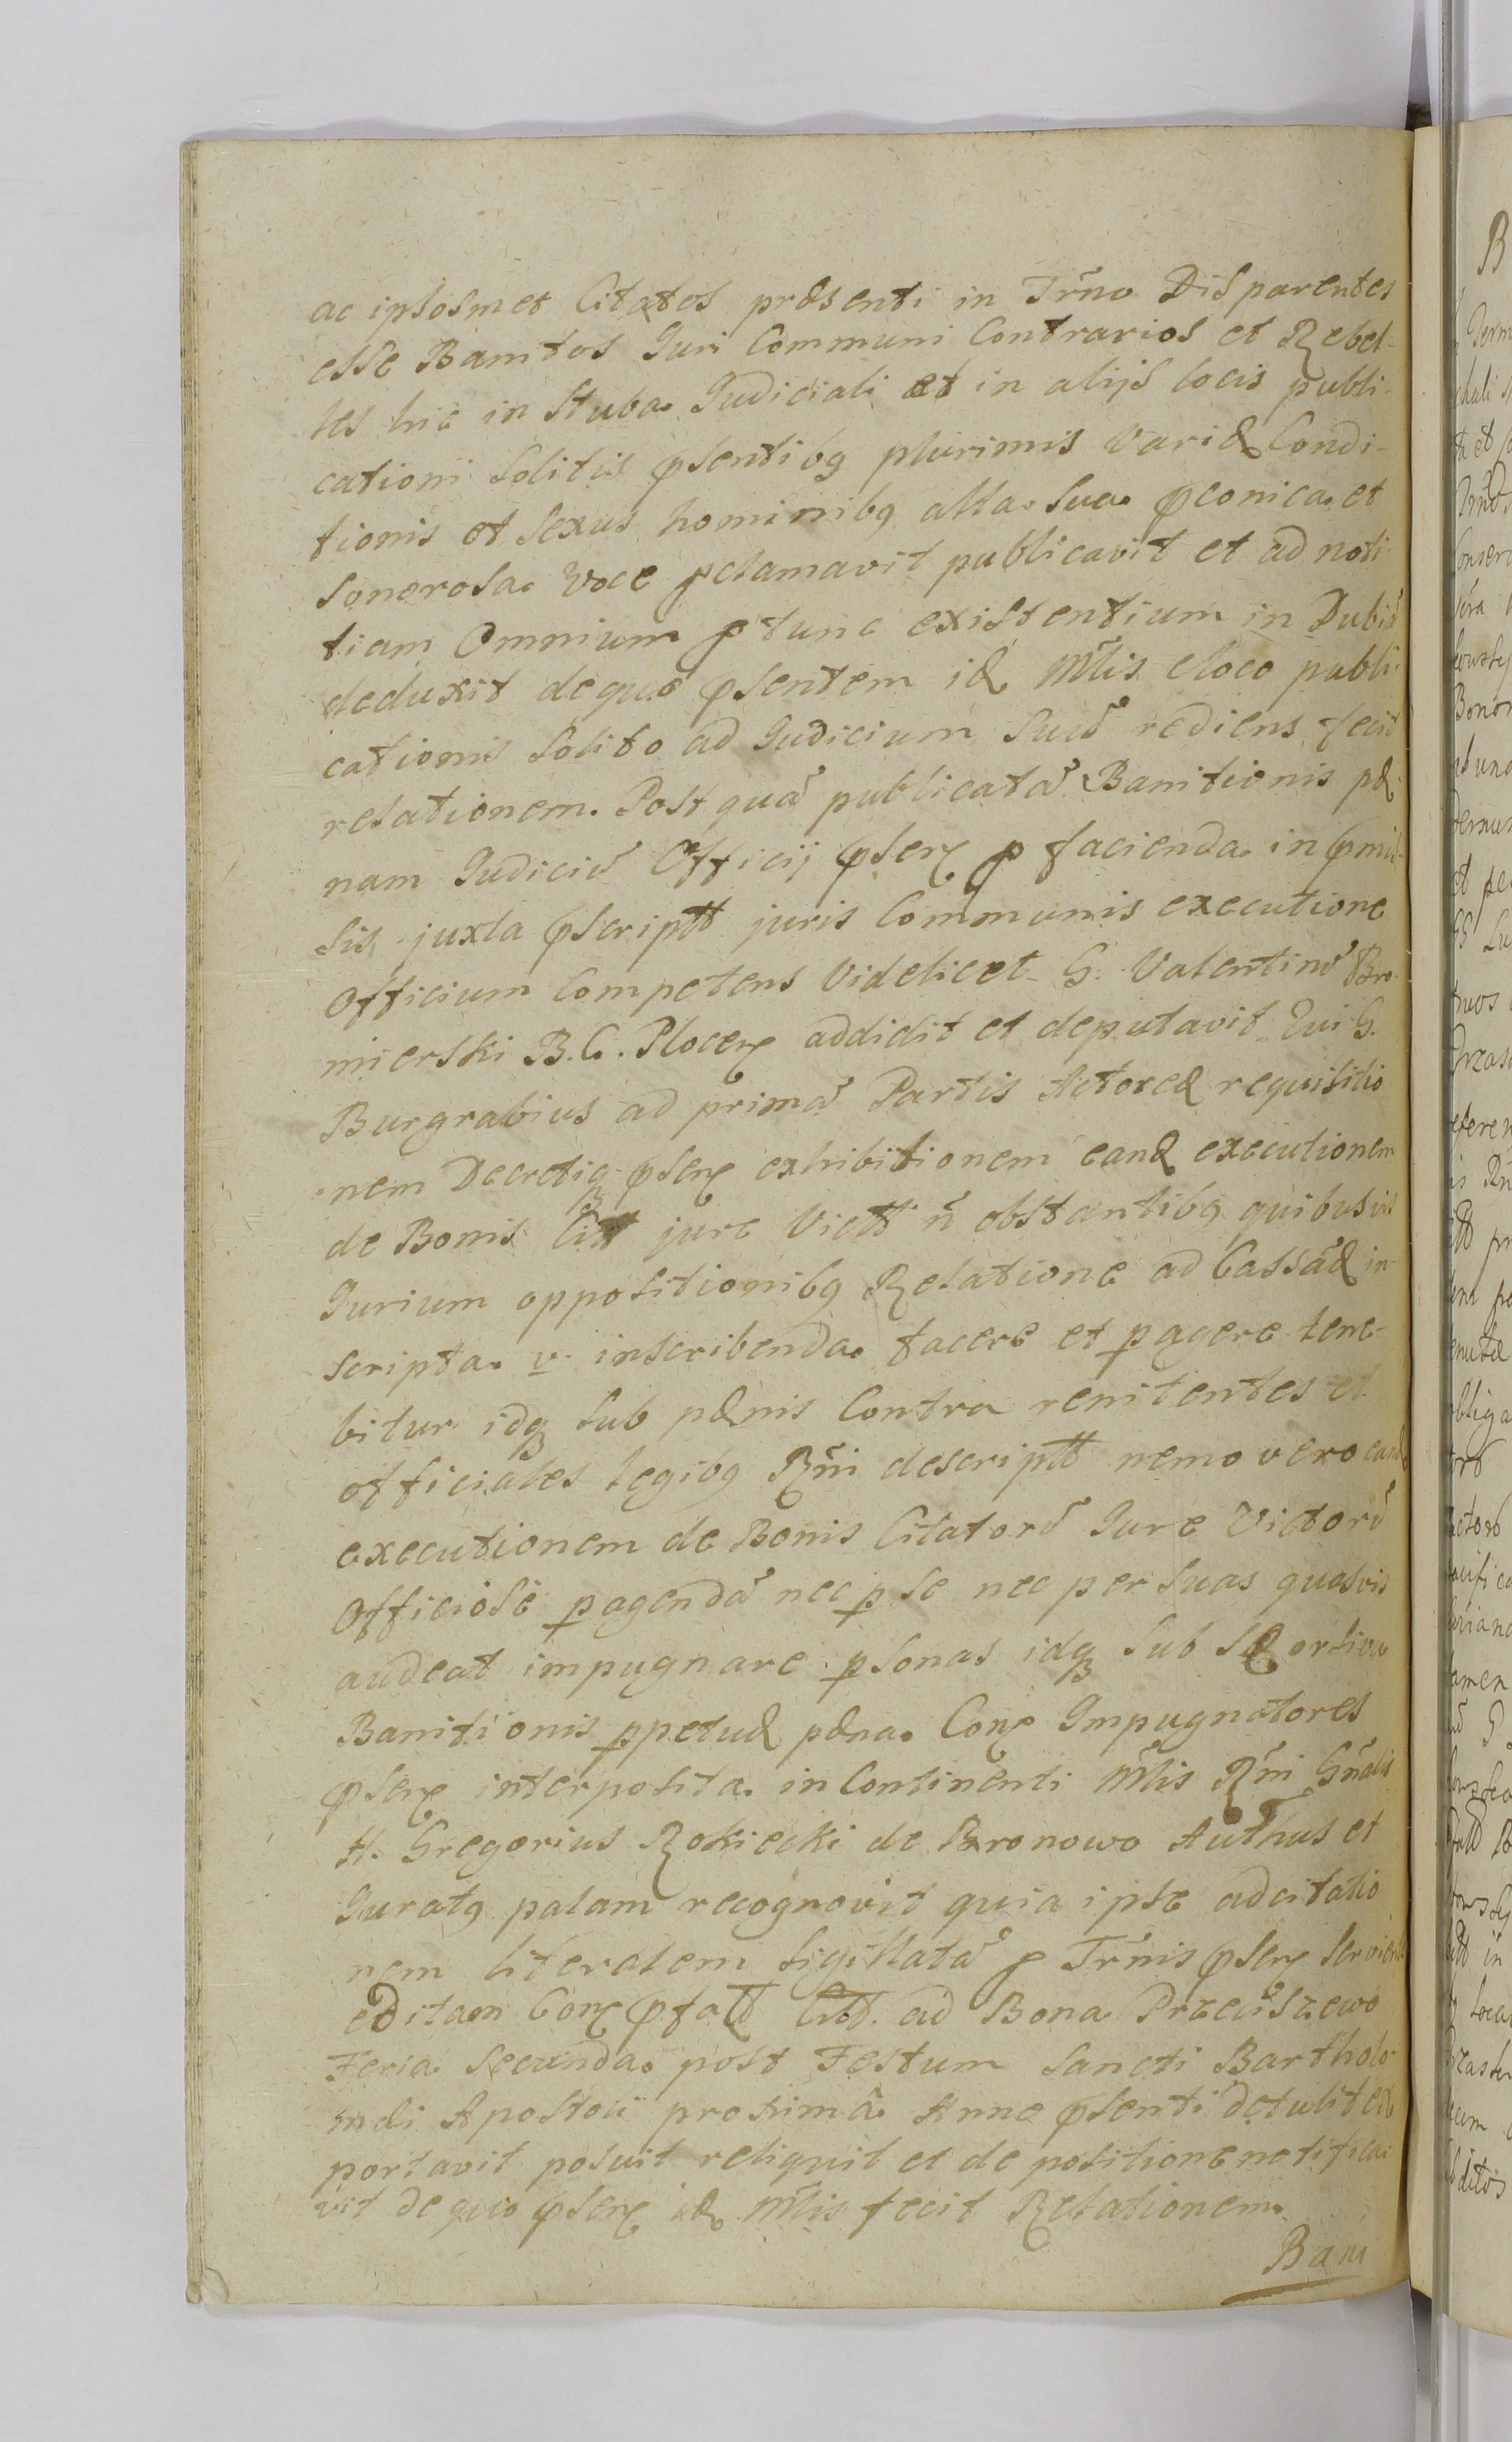 ac ipsosmet Citatos præsenti in Trño Disparentes
esse Banitos Juri Communi Contrarios et Rebel-
les hic in Stuba Judiciali et in alijs locis publi-
cationi solitis pſentibq plurimis Variæ Condi-
tionis et Sexus hominibq alta sua pconica et
sonerosa voce pclamavit publicavit et ad noti-
tiam Omnium ptunc existentium in Dubiã
deduxit dequo pſentem idē Mĩlis eloco publi-
cationis solito ad Judicium suũ rediens fecit
relationem. Post quã publicatã Banitionis pæ-
nam Judiciũ Officij pſens p facienda in pmiſ-
sis juxta pſcriptt juris Communis executione
Officium Competens Videlicet G. Valentinũ Bro-
mierski B. C. Plocens addidit et deputavit Qui G.
Burgrabius ad primã Partis Actoreæ requisitio
nem Decretiq pſens exhibitionem eandē executionem
de Bonis Citt jure Victt ñ obstantibq quibusvis
Jurium oppositionibq Relatione ad Cassãdē in-
scripta v. inscribenda facere et pagere tene-
bitur idq sub pænis Contra renitentes et
officiales legibq Rñi descriptt nemo vero eandē
executionem de Bonis Citatorũ Jure Victorũ
Officiose pagendã nec p se nec per suas quasvis
audeat impugnare psonas idq sub
Banitionis ppetuæ pæna Cone Impugnatores
pſens interposita in Continenti Mĩlis Rñi Gñalis
H. Gregorius Rokicki de Bronowo Authus et
Juratq palam recognovit quia ipse ad citatio
nem literalem sigillatã p Trñis pſens
editam Cone pfatt Citt. ad Bona Przeciszewo
Feria Secunda post Festum Sancti Bartholo-
mæi Apostoli proxima Anno pſenti detulit
portavit posuit reliquit et de positione notifica-
vit de quo pſens idē Mĩlis fecit Relationem.
Bani